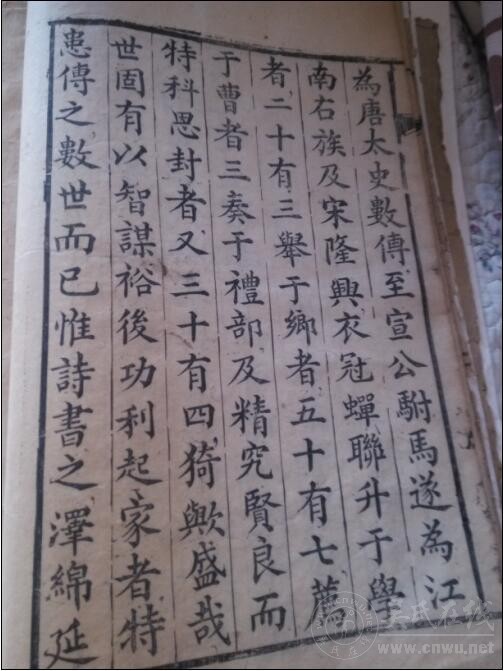 為唐太史數傳至宣公駙馬遂為江
南右族及宋隆興衣冠蟬聯升于學
者二十有三舉于鄉者五十有七薦
于曹者三奏于禮部及精究賢良而
特科恩封者又三十有四猗歟盛哉
世固有以智謀裕後功利起家者特
患傳之數世而已惟詩書之澤綿延
吴氏在线
www.cnwu.net